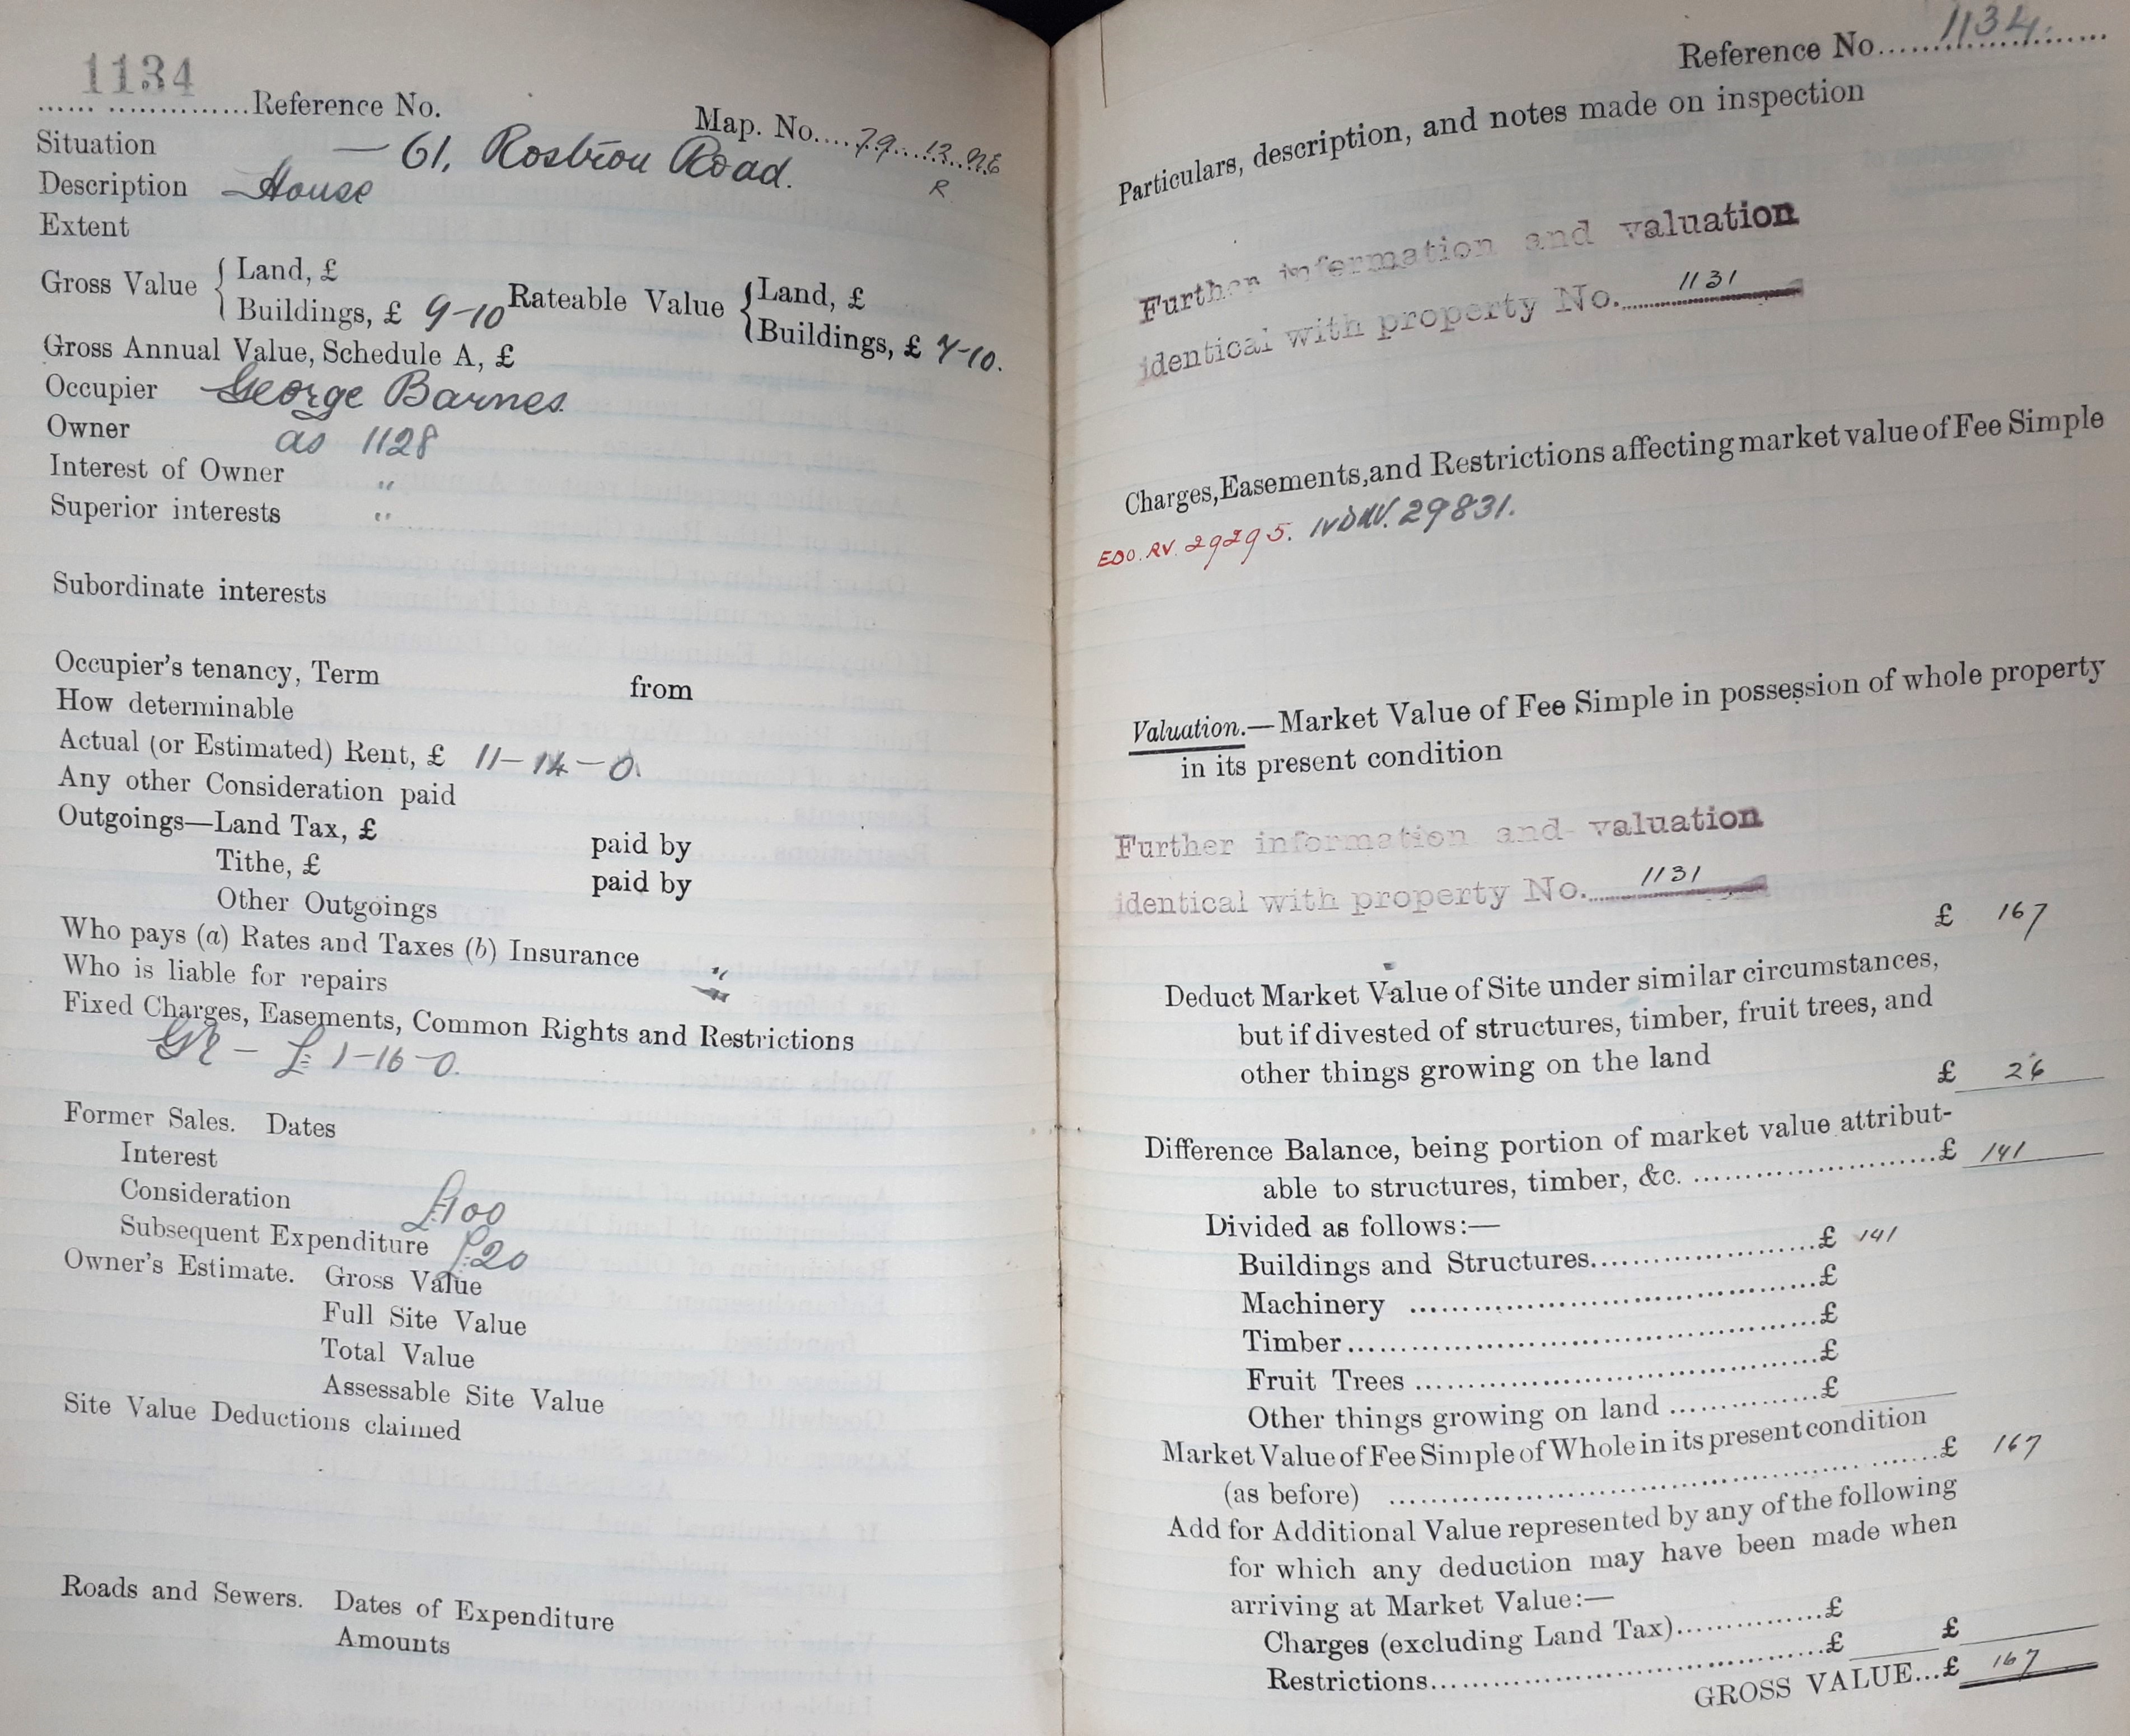 1134
...... ...............Reference No.
Map. No....79...13..NE
R
Situation — 61, Rostron Road.
Description House
Extent
Gross Value { Land, £
Buildings, £ 9-10
Rateable Value { Land, £
Buildings, £ 7-10.
Gross Annual Value, Schedule A, £
Occupier George Barnes.
Owner as 1128
Interest of Owner "
Superior interests "
Subordinate interests
Occupier's tenancy, Term from
How determinable
Actual (or Estimated) Rent, £ 11-14-0.
Any other Consideration paid
Outgoings—Land Tax, £ paid by
Tithe, £ paid by
Other Outgoings
Who pays (a) Rates and Taxes (b) Insurance "
Who is liable for repairs
Fixed Charges, Easements, Common Rights and Restrictions
GR - £1-16-0.
Former Sales. Dates
Interest
Consideration £100
Subsequent Expenditure £20
Owner's Estimate. Gross Value
Full Site Value
Total Value
Assessable Site Value
Site Value Deductions claimed
Roads and Sewers. Dates of Expenditure
Amounts
Reference No......1134......
Particulars, description, and notes made on inspection
Further information and valuation
identical with property No. 1131
Charges, Easements, and Restrictions affecting market value of Fee Simple
EDO. RV. 29295. 29831.
Valuation.—Market Value of Fee Simple in possession of whole property
in its present condition
Further information and valuation
identical with property No. 1131
£ 167
Deduct Market Value of Site under similar circumstances,
but if divested of structures, timber, fruit trees, and
other things growing on the land
£ 26
Difference Balance, being portion of market value attribut-
able to structures, timber, &c. ..........................£ 141
Divided as follows:—
Buildings and Structures.......................£ 141
Machinery .......................................£
Timber............................................£
Fruit Trees .......................................£
Other things growing on land ...............£
Market Value of Fee Simple of Whole in its present condition
(as before) ..................................................£ 167
Add for Additional Value represented by any of the following
for which any deduction may have been made when
arriving at Market Value:—
Charges (excluding Land Tax)...............£
Restrictions.......................................£ £
GROSS VALUE...£ 167